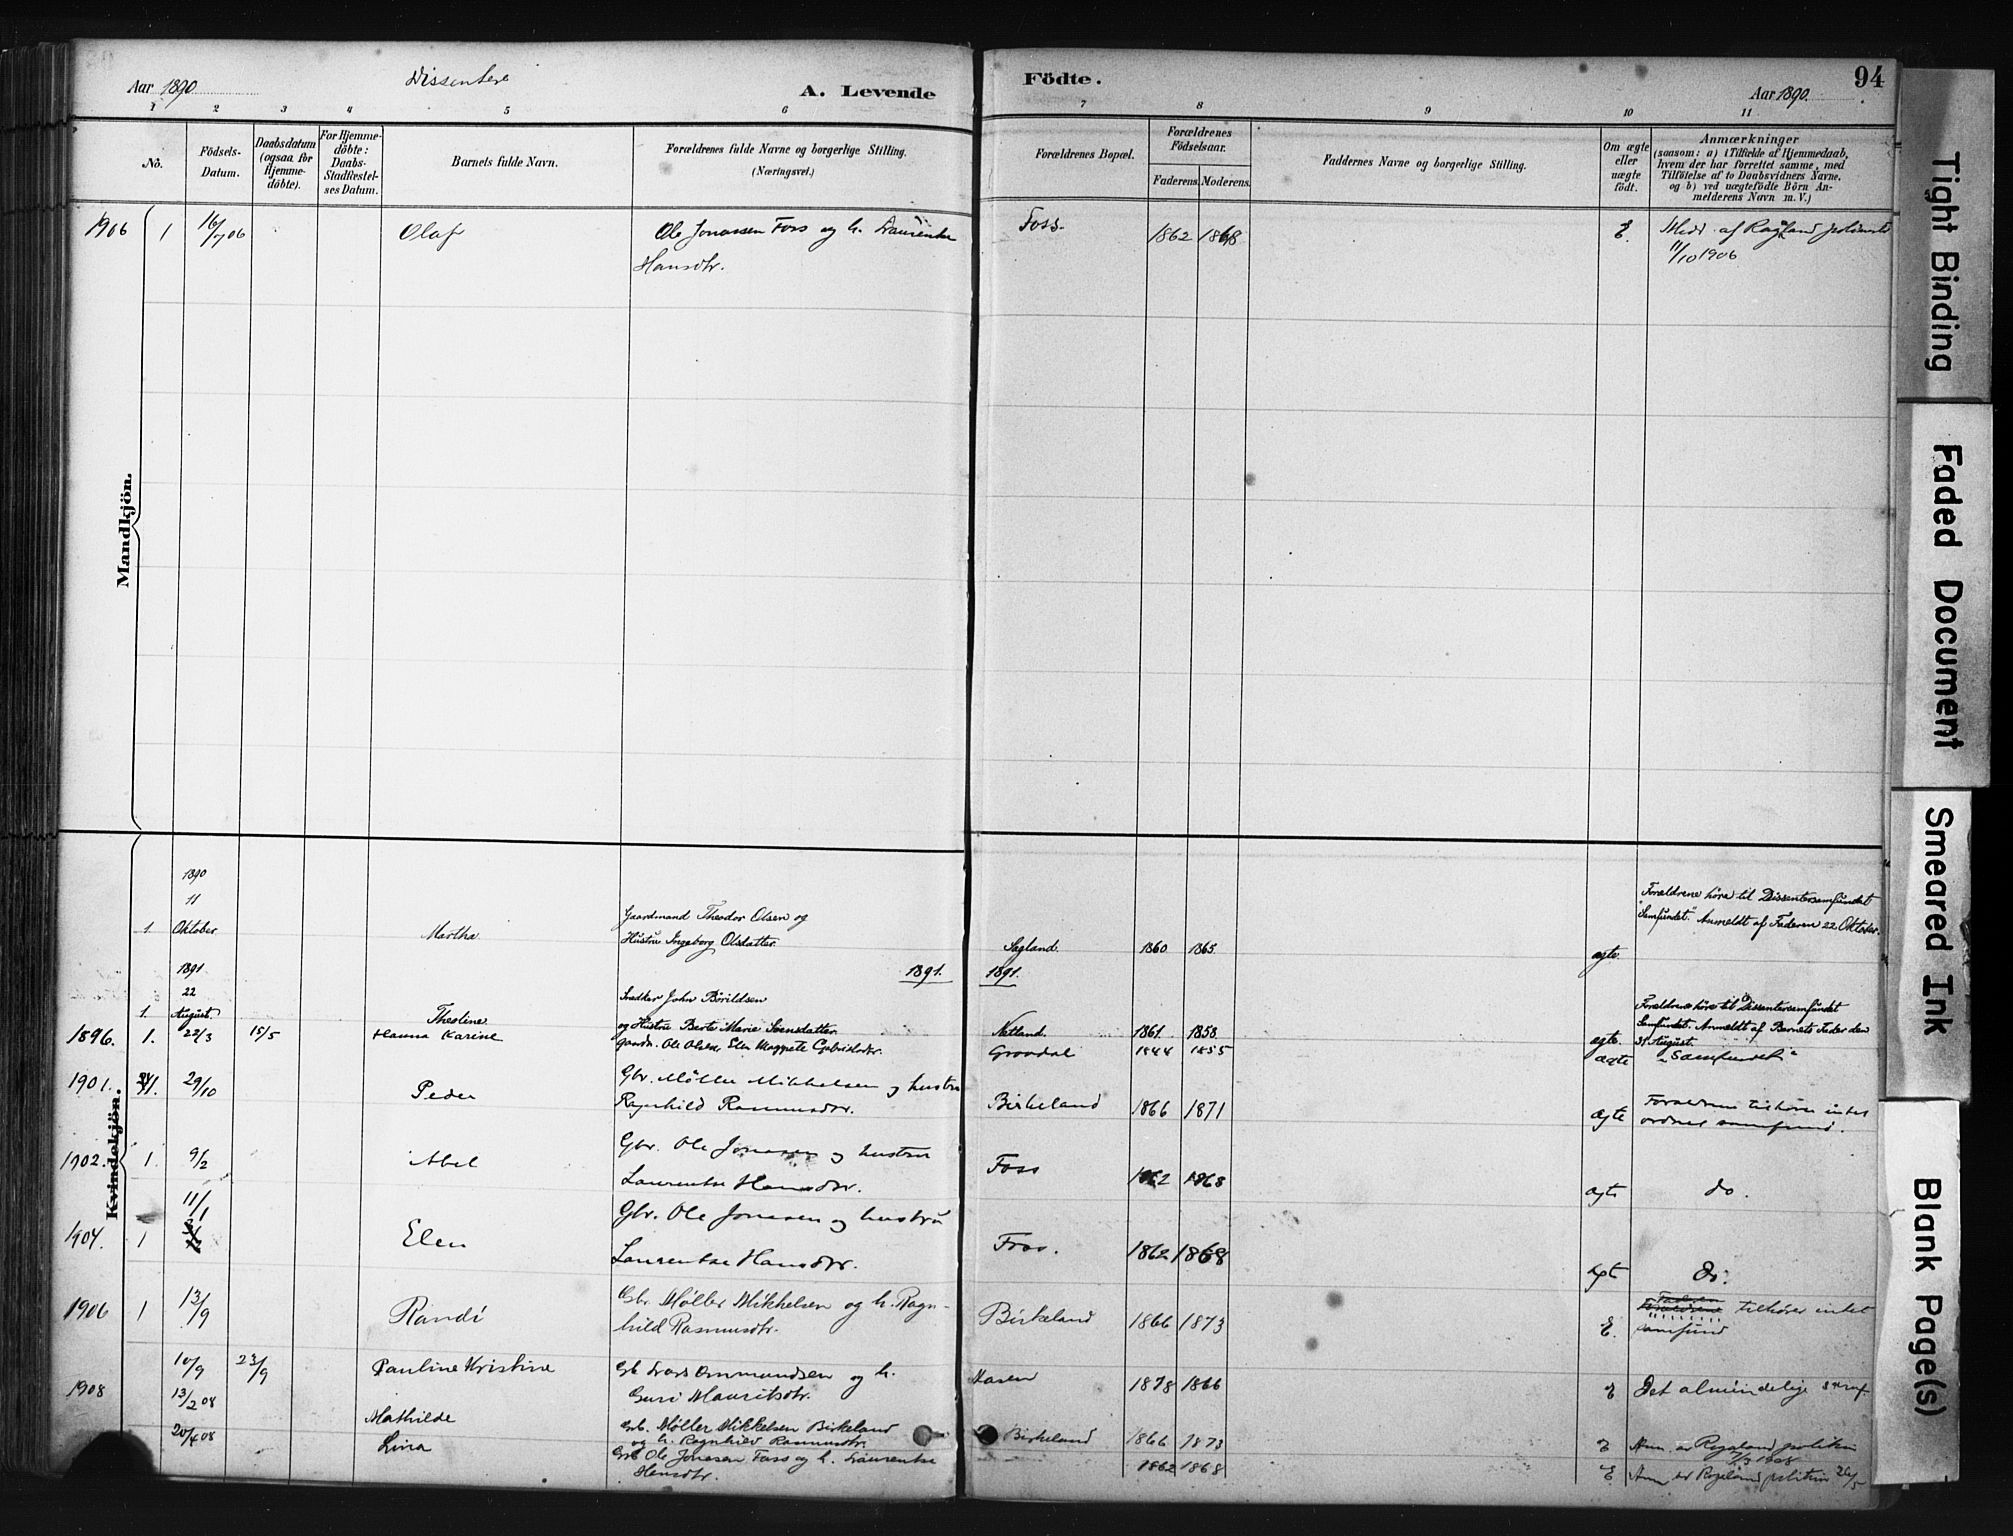 Aar 1890
Dissentere
A. Levende
Födte.
94
Aar 1890.
1 2 3 4 5 6 7 8 9 10 11
No.
Födsels-
Datum.
Daabsdatum
(ogsaa for
Hjemme-
döbte).
For Hjemme-
döbte:
Daabs-
Stadfæstel-
ses Datum.
Barnets fulde Navn.
Forældrenes fulde Navne og borgerlige Stilling.
(Næringsvei.)
Forældrenes Bopæl.
Forældrenes
Födselsaar.
Faderens. Moderens.
Faddernes Navne og borgerlige Stilling.
Om ægte
eller
uægte
födt.
Anmærkninger
(saasom: a) i Tilfælde af Hjemmedaab,
hvem der har forrettet samme, med
Tilföielse af to Daabsvidners Navne.
og b) ved uægtefödte Börn An-
melderens Navn m. V.)
Mandkjön.
1906 1 16/7 06 Olaf Ole Jonassen Foss og h. Laurentse
Hansdtr.
Foss. 1862 1868 E. Medd. af
11/10 1906
Kvindekjön.
1890
11
1. Oktober Martha Gaardmand Theodor Olsen og
Hustru Ingeborg Olsdatter.
Sagland. 1860 1865. ægte.
Forældrene höre til Dissentersamfundet
"Samfundet". Anmeldt af Faderen 22 Oktober.
1891. 1891.
1891
22
1. August. Theoline Snedker John Börildsen
og Hustru Berte Marie Svensdatter
Netland. 1861. 1858 ægte.
Forældrene höre til Dissentersamfundet
Samfundet. Anmeldt af Barnets Fader den
31 August.
1896. 1. 22/3 15/5 Hanna Karine Gaardm. Ole Olsen, Elen Margrete Gabrielsdtr. Grovdal 1844 1855 ægte "Samfundet"
1901. 1. 29/10 Peder Gbr. Møller Mikkelsen og hustru
Ragnhild Rasmusdtr.
Birkeland 1866 1871 ægte Forældrene tilhører intet
ordnet samfund.
1902. 1. 9/2 Abel Gbr. Ole Jonassen og hustru
Laurentse Hansdtr.
Foss 1862 1868 ægte do.
1904. 1 11/1 Elen Gbr. Ole Jonassen og hustru
Laurentse Hansdtr.
Foss. 1862 1868 ægte do.
1906 1 13/9 Randi Gbr Møller Mikkelsen og h. Ragn-
hild Rasmusdtr.
Birkeland 1866 1873 E. Faderen
Forældrene tilhører intet
samfund
10/9 23/9 Pauline Kristine Grb Lars Ommundsen og h.
Guri Mauritsdtr.
1878 1866 E Det almindelige samf.
1908 13/2 08 Mathilde Grb. Møller Mikkelsen Birkeland
og h. Ragnhild Rasmusdtr.
Birkeland 1866 1873 E
1908
20/4 08 Lina Grb Ole Jonassen Foss og h. Laurentse
Hansdtr.
1862 1868 E 26/5
Tight Binding
Faded Document
Smeared Ink
Blank Page(s)